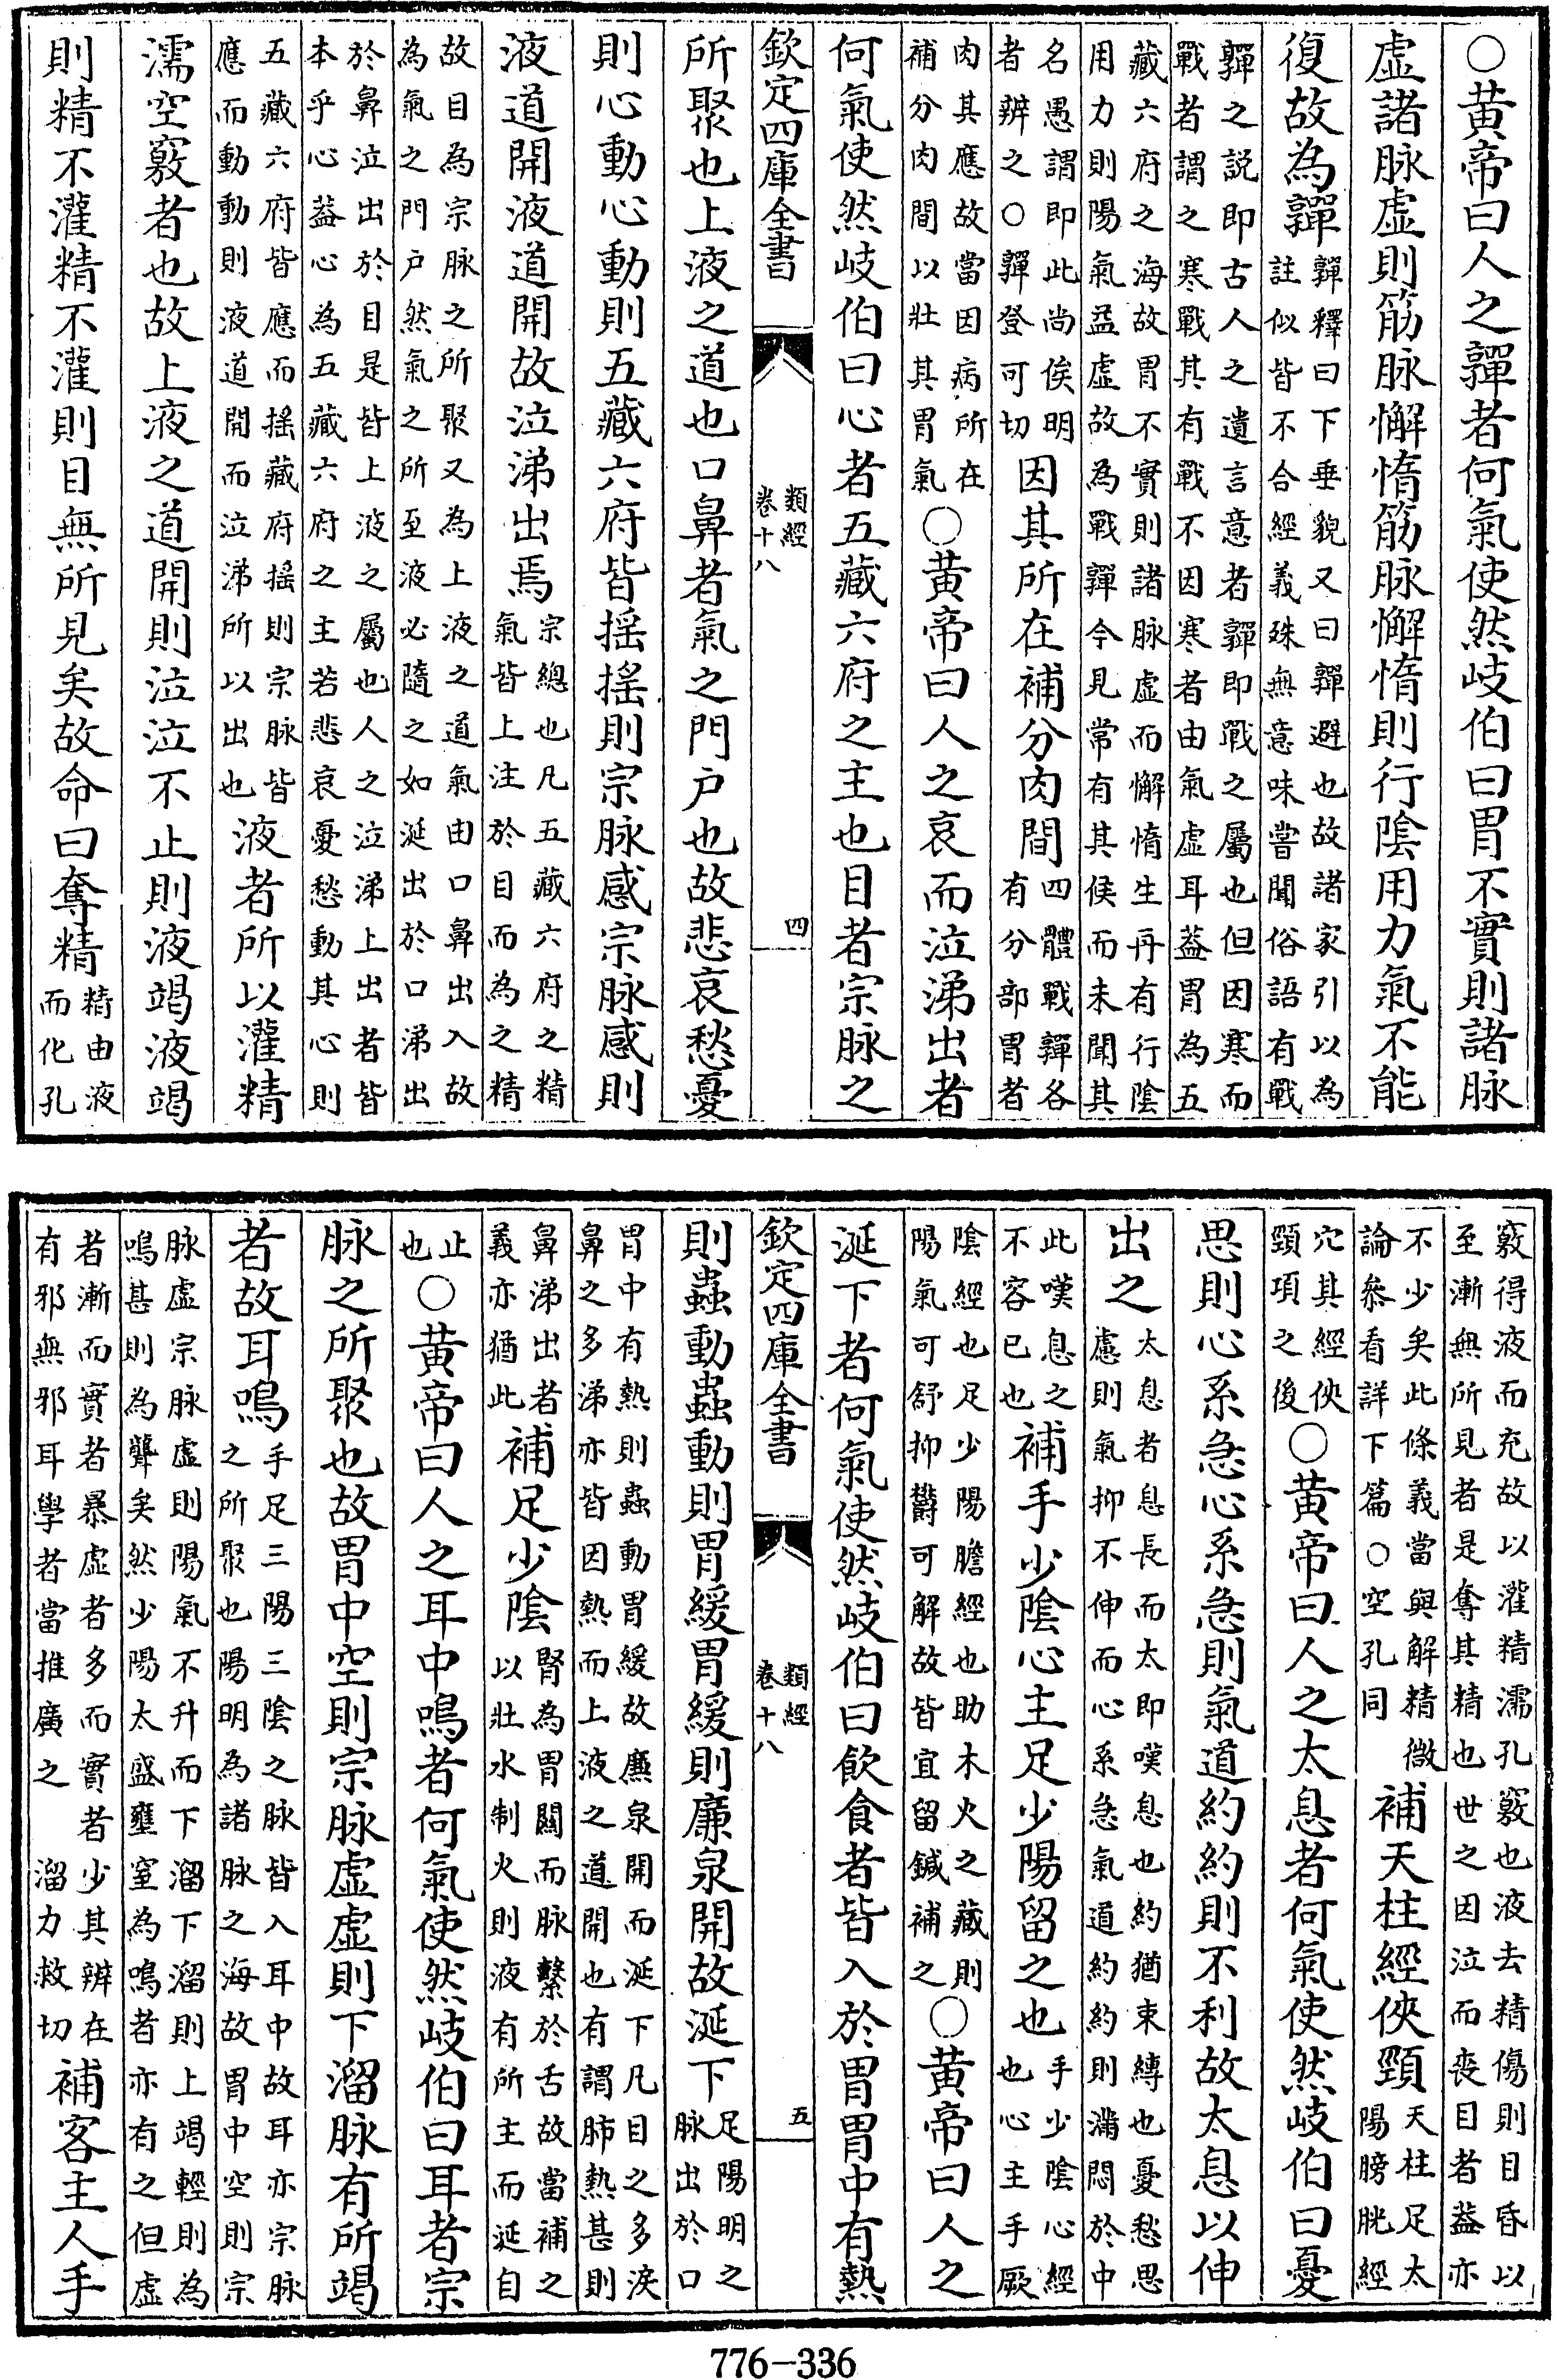 ○黄帝曰人之嚲者何氣使然岐伯曰胃不實則諸脉
虚諸脉虚則筋脉懈惰筋脉懈惰則行隂用力氣不能
復故為嚲嚲釋曰下垂貌又曰嚲避也故諸家引以為註似皆不合經義殊無意味嘗聞俗語有戰
嚲之説即古人之遺言意者嚲即戰之屬也但因寒而戰者謂之寒戰其有戰不因寒者由氣虚耳葢胃為五
藏六府之海故胃不實則諸脉虚而懈惰生再有行隂用力則陽氣益虚故為戰嚲今見常有其候而未聞其
名愚謂即此尚俟明者辨之○嚲登可切因其所在補分肉間四體戰嚲各有分部胃者
肉其應故當因病所在補分肉間以壯其胃氣○黄帝曰人之哀而泣涕出者
何氣使然岐伯曰心者五藏六府之主也目者宗脉之
欽定四庫全書 類經卷十八 四
所聚也上液之道也口鼻者氣之門户也故悲哀愁憂
則心動心動則五藏六府皆揺揺則宗脉感宗脉感則
液道開液道開故泣涕出焉宗總也凡五藏六府之精氣皆上注於目而為之精
故目為宗脉之所聚又為上液之道氣由口鼻出入故為氣之門户然氣之所至液必隨之如涎出於口涕出
於鼻泣出於目是皆上液之屬也人之泣涕上出者皆本乎心葢心為五藏六府之主若悲哀憂愁動其心則
五藏六府皆應而揺藏府揺則宗脉皆應而動動則液道開而泣涕所以出也液者所以灌精
濡空竅者也故上液之道開則泣泣不止則液竭液竭
則精不灌精不灌則目無所見矣故命曰奪精精由液而化孔
竅得液而充故以灌精濡孔竅也液去精傷則目昏以至漸無所見者是奪其精也世之因泣而䘮目者葢亦
不少矣此條義當與解精微論叅看詳下篇○空孔同補天柱經俠頸天柱足太陽膀胱經
穴其經俠頸項之後○黄帝曰人之太息者何氣使然岐伯曰憂
思則心系急心系急則氣道約約則不利故太息以伸
出之太息者息長而太即嘆息也約猶束縛也憂愁思慮則氣抑不伸而心系急氣道約約則滿悶於中
此嘆息之不容已也補手少隂心主足少陽留之也手少隂心經也心主手厥
隂經也足少陽膽經也助木火之藏則陽氣可舒抑欝可解故皆宜留鍼補之○黄帝曰人之
涎下者何氣使然岐伯曰飲食者皆入於胃胃中有熱
欽定四庫全書 類經卷十八 五
則蟲動蟲動則胃緩胃緩則廉泉開故涎下足陽明之脉出於口
胃中有熱則蟲動胃緩故廉泉開而涎下凡目之多淚鼻之多涕亦皆因熱而上液之道開也有謂肺熱甚則
鼻涕出者義亦猶此補足少隂腎為胃關而脉繫於舌故當補之以壯水制火則液有所主而涎自
止也○黄帝曰人之耳中鳴者何氣使然岐伯曰耳者宗
脉之所聚也故胃中空則宗脉虚虚則下溜脉有所竭
者故耳鳴手足三陽三隂之脉皆入耳中故耳亦宗脉之所聚也陽明為諸脉之海故胃中空則宗
脉虚宗脉虚則陽氣不升而下溜下溜則上竭輕則為鳴甚則為聾矣然少陽太盛壅窒為鳴者亦有之但虚
者漸而實者暴虚者多而實者少其辨在有邪無邪耳學者當推廣之 溜力救切補客主人手
776-336